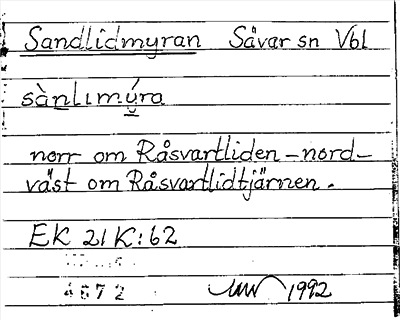 Sandlidmyran Sävar sn Vbl
sàn̲lımý̬ra
norr om Råsvartliden – nord-
väst om Råsvartlidtjärnen.
EK 21 K:62
4672
1992